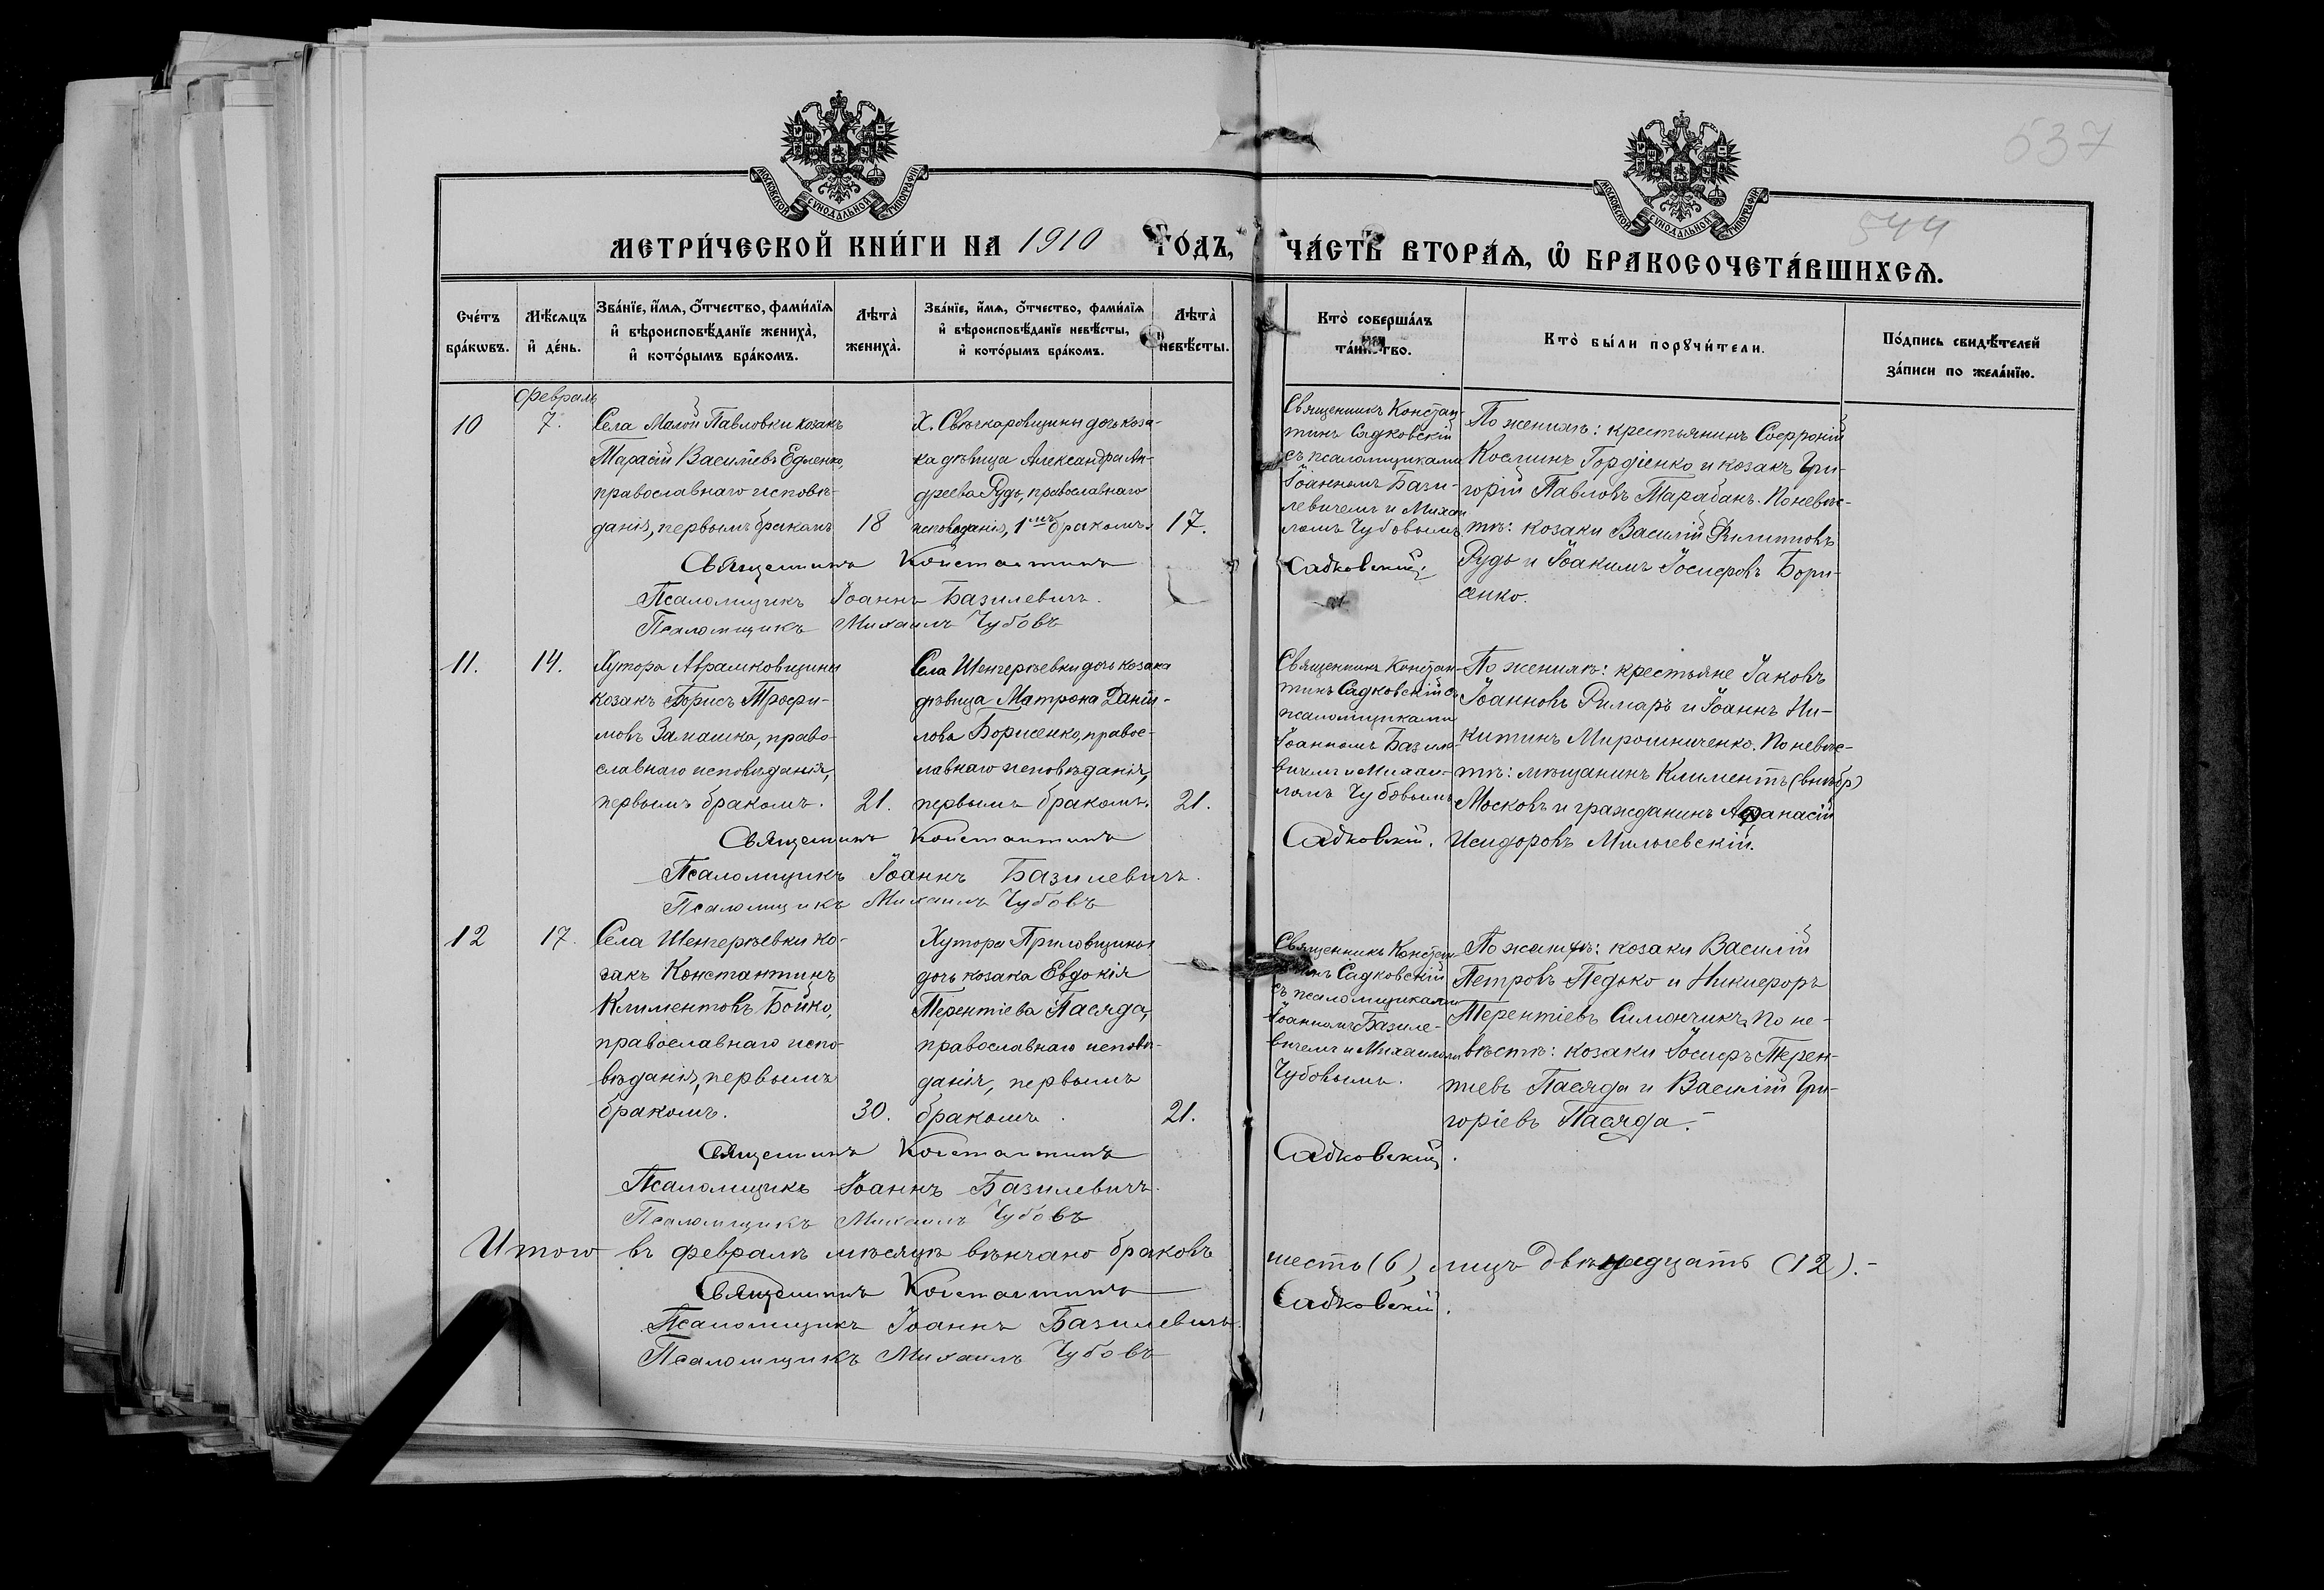 537
544
МОСКОВСКОЙ СѴНОДАЛЬНОЙ ТИПОГРАФІИ
МОСКОВСКОЙ СѴНОДАЛЬНОЙ ТИПОГРАФІИ
МЕТРИ́ЧЕСКОЙ КНИ́ГИ НА 1910 ГО́ДЪ, ЧА́СТЬ ВТОРА́Ѧ, Ѡ҆ БРАКОСОЧЕТА́ВШИХСѦ.
Сче́тъ бра́кѡвъ.
Мѣ́сяцъ и҆ де́нь.
Зва́нїе, и҆́мѧ, ѻ҆́тчество, фами́лїѧ
и҆ вѣроисповѣ́данїе жениха̀,
и҆ кото́рымъ бра́комъ.
Лѣта̀ жениха̀.
Зва́нїе, и҆́мѧ, ѻ҆́тчество, фами́лїѧ
и҆ вѣроисповѣ́данїе невѣ́сты,
и҆ кото́рымъ бра́комъ.
Лѣта̀ невѣ́сты.
Кто̀ соверша́лъ
та́инство.
Кто̀ бы́ли порꙋчи́тели.
По́дпись свидѣ́телей
за́писи по жела́нїю.
Февраль
10
7.
Села Малой Павловки козакъ
Тарасій Васильевъ Едленко,
православнаго исповѣ-
данія, первымъ бракомъ
18
Х. Свѣчкаровщины дочь коза-
ка дѣвица Александра Ан-
дреева Рудь, православнаго
исповѣданія, 1мъ бракомъ.
17.
Священникъ Констан-
тинъ Садковскій
съ псаломщиками
Іоанномъ Бази-
левичемъ и Михаи
ломъ Чубовымъ
По женихѣ: крестьянинъ Софроній
Косминъ Гордіенко и козакъ Гри-
горій Павловъ Тарабанъ. По невѣс-
тѣ: козаки Василій Филипповъ
Рудь и Іоакимъ Іосифовъ Бори-
сенко.
Священникъ Константинъ Садковскій
Псаломщикъ Іоаннъ Базилевичъ.
Псаломщикъ Михаилъ Чубовъ
11.
14.
Хутора Аврамковщины
козакъ Борисъ Трофи-
мовъ Замашка, право-
славнаго исповѣданія,
первымъ бракомъ.
21.
Села Шенгерѣевки дочь козака
дѣвица Матрона Даніи-
лова Борисенко, правос-
лавнаго исповѣданія,
первымъ бракомъ.
21.
Священникъ Констан-
тинъ Садковскій съ
псаломщиками
Іоанномъ Базиле-
вичемъ и Михаи-
ломъ Чубовымъ
По женихѣ: крестьяне Іаковъ
Іоанновъ Римаръ и Іоаннъ Ни-
китинъ Мирошниченко. По невѣс-
тѣ: мѣщанинъ Климентъ (внѣбр)
Московъ и гражданинъ Афанасій
Исидоровъ Мильчевскій.
Священникъ Константинъ Садковскій.
Псаломщикъ Іоаннъ Базилевичъ.
Псаломщикъ Михаилъ Чубовъ
12
17.
Села Шенгерѣевки ко-
закъ Константинъ
Климентовъ Бойко,
православнаго испо-
вѣданія, первымъ
бракомъ.
30.
Хутора Приловщины
дочь козака Евдокія
Терентіева Пасяда,
православнаго исповѣ-
данія, первымъ
бракомъ.
21.
Священникъ Констан
тинъ Садковскій
съ псаломщиками
Іоанномъ Базиле-
вичемъ и Михаиломъ
Чубовымъ.
По женихѣ: козаки Василій
Петровъ Педько и Никифоръ
Терентіевъ Симончикъ. По не-
вѣстѣ: козаки Іосифъ Терен-
тіевъ Пасяда и Василій Гри-
горіевъ Пасяда.-
Священникъ Константинъ Садковскій.
Псаломщикъ Іоаннъ Базилевичъ.
Псаломщикъ Михаилъ Чубовъ
Итого въ февралѣ мѣсяцѣ вѣнчано браковъ шесть (6), лицъ двѣнадцать (12).-
Священникъ Константинъ Садковскій.
Псаломщикъ Іоаннъ Базилевичъ.
Псаломщикъ Михаилъ Чубовъ